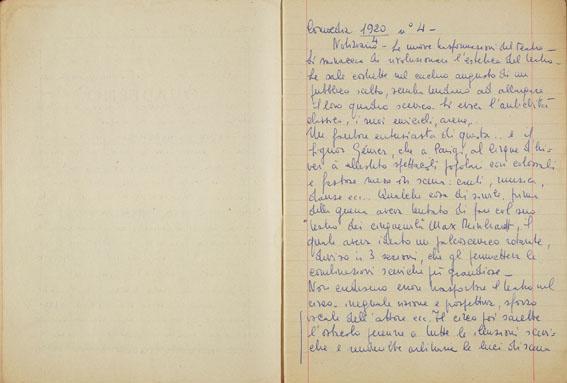 Comœdia 1920 n° 4 -
Notiziario 4 - Le nuove trasformazioni del teatro -
Si minaccia di rivoluzionare l'estetica del teatro -
Le sale costrette nel cerchio angusto di un
pubblico scelto, sembra tendano ad allargare
il loro quadro scenico. Si evoca l'antichità
classica, i suoi emicicli, arene,..
Un fautore entusiasta di questa .. è il
signor Gémier, che a Parigi, al Cirque d'hi-
ver à allestito spettacoli popolari con colossali
e fastose messe in scena: canti, musica,
danze ecc... Qualche cosa di simile, prima
della guerra aveva tentato di fare col suo
"teatro dei cinquemila" Max Reinhardt, il
quale aveva ideato un palcoscenico rotante,
diviso in 3 sezioni, che gli permetteva le
combinazioni sceniche più grandiose -
Non crediamo errore trasportare il teatro nel
circo. ineguale visione e prospettiva, sforzo
vocale dell'attore ecc. Il circo poi sarebbe
l'ostacolo perenne a tutte le illusioni sceni-
che e le luci di scena